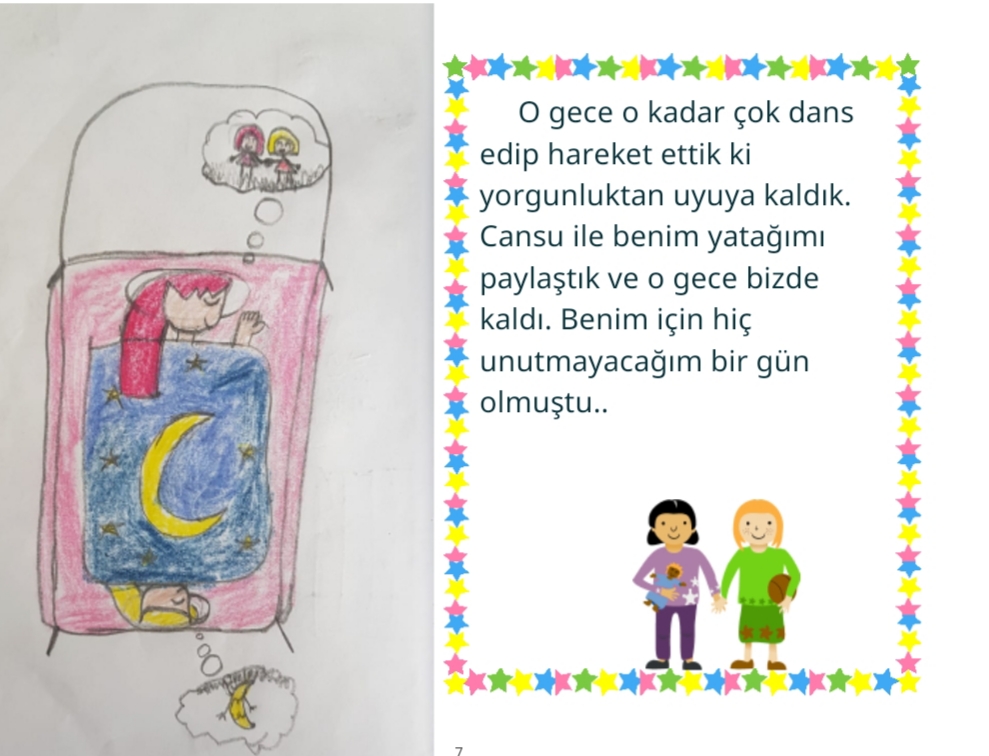 O gece o kadar çok dans
edip hareket ettik ki
yorgunluktan uyuya kaldık.
Cansu ile benim yatağımı
paylaştık ve o gece bizde
kaldı. Benim için hiç
unutmayacağım bir gün
olmuştu..
7